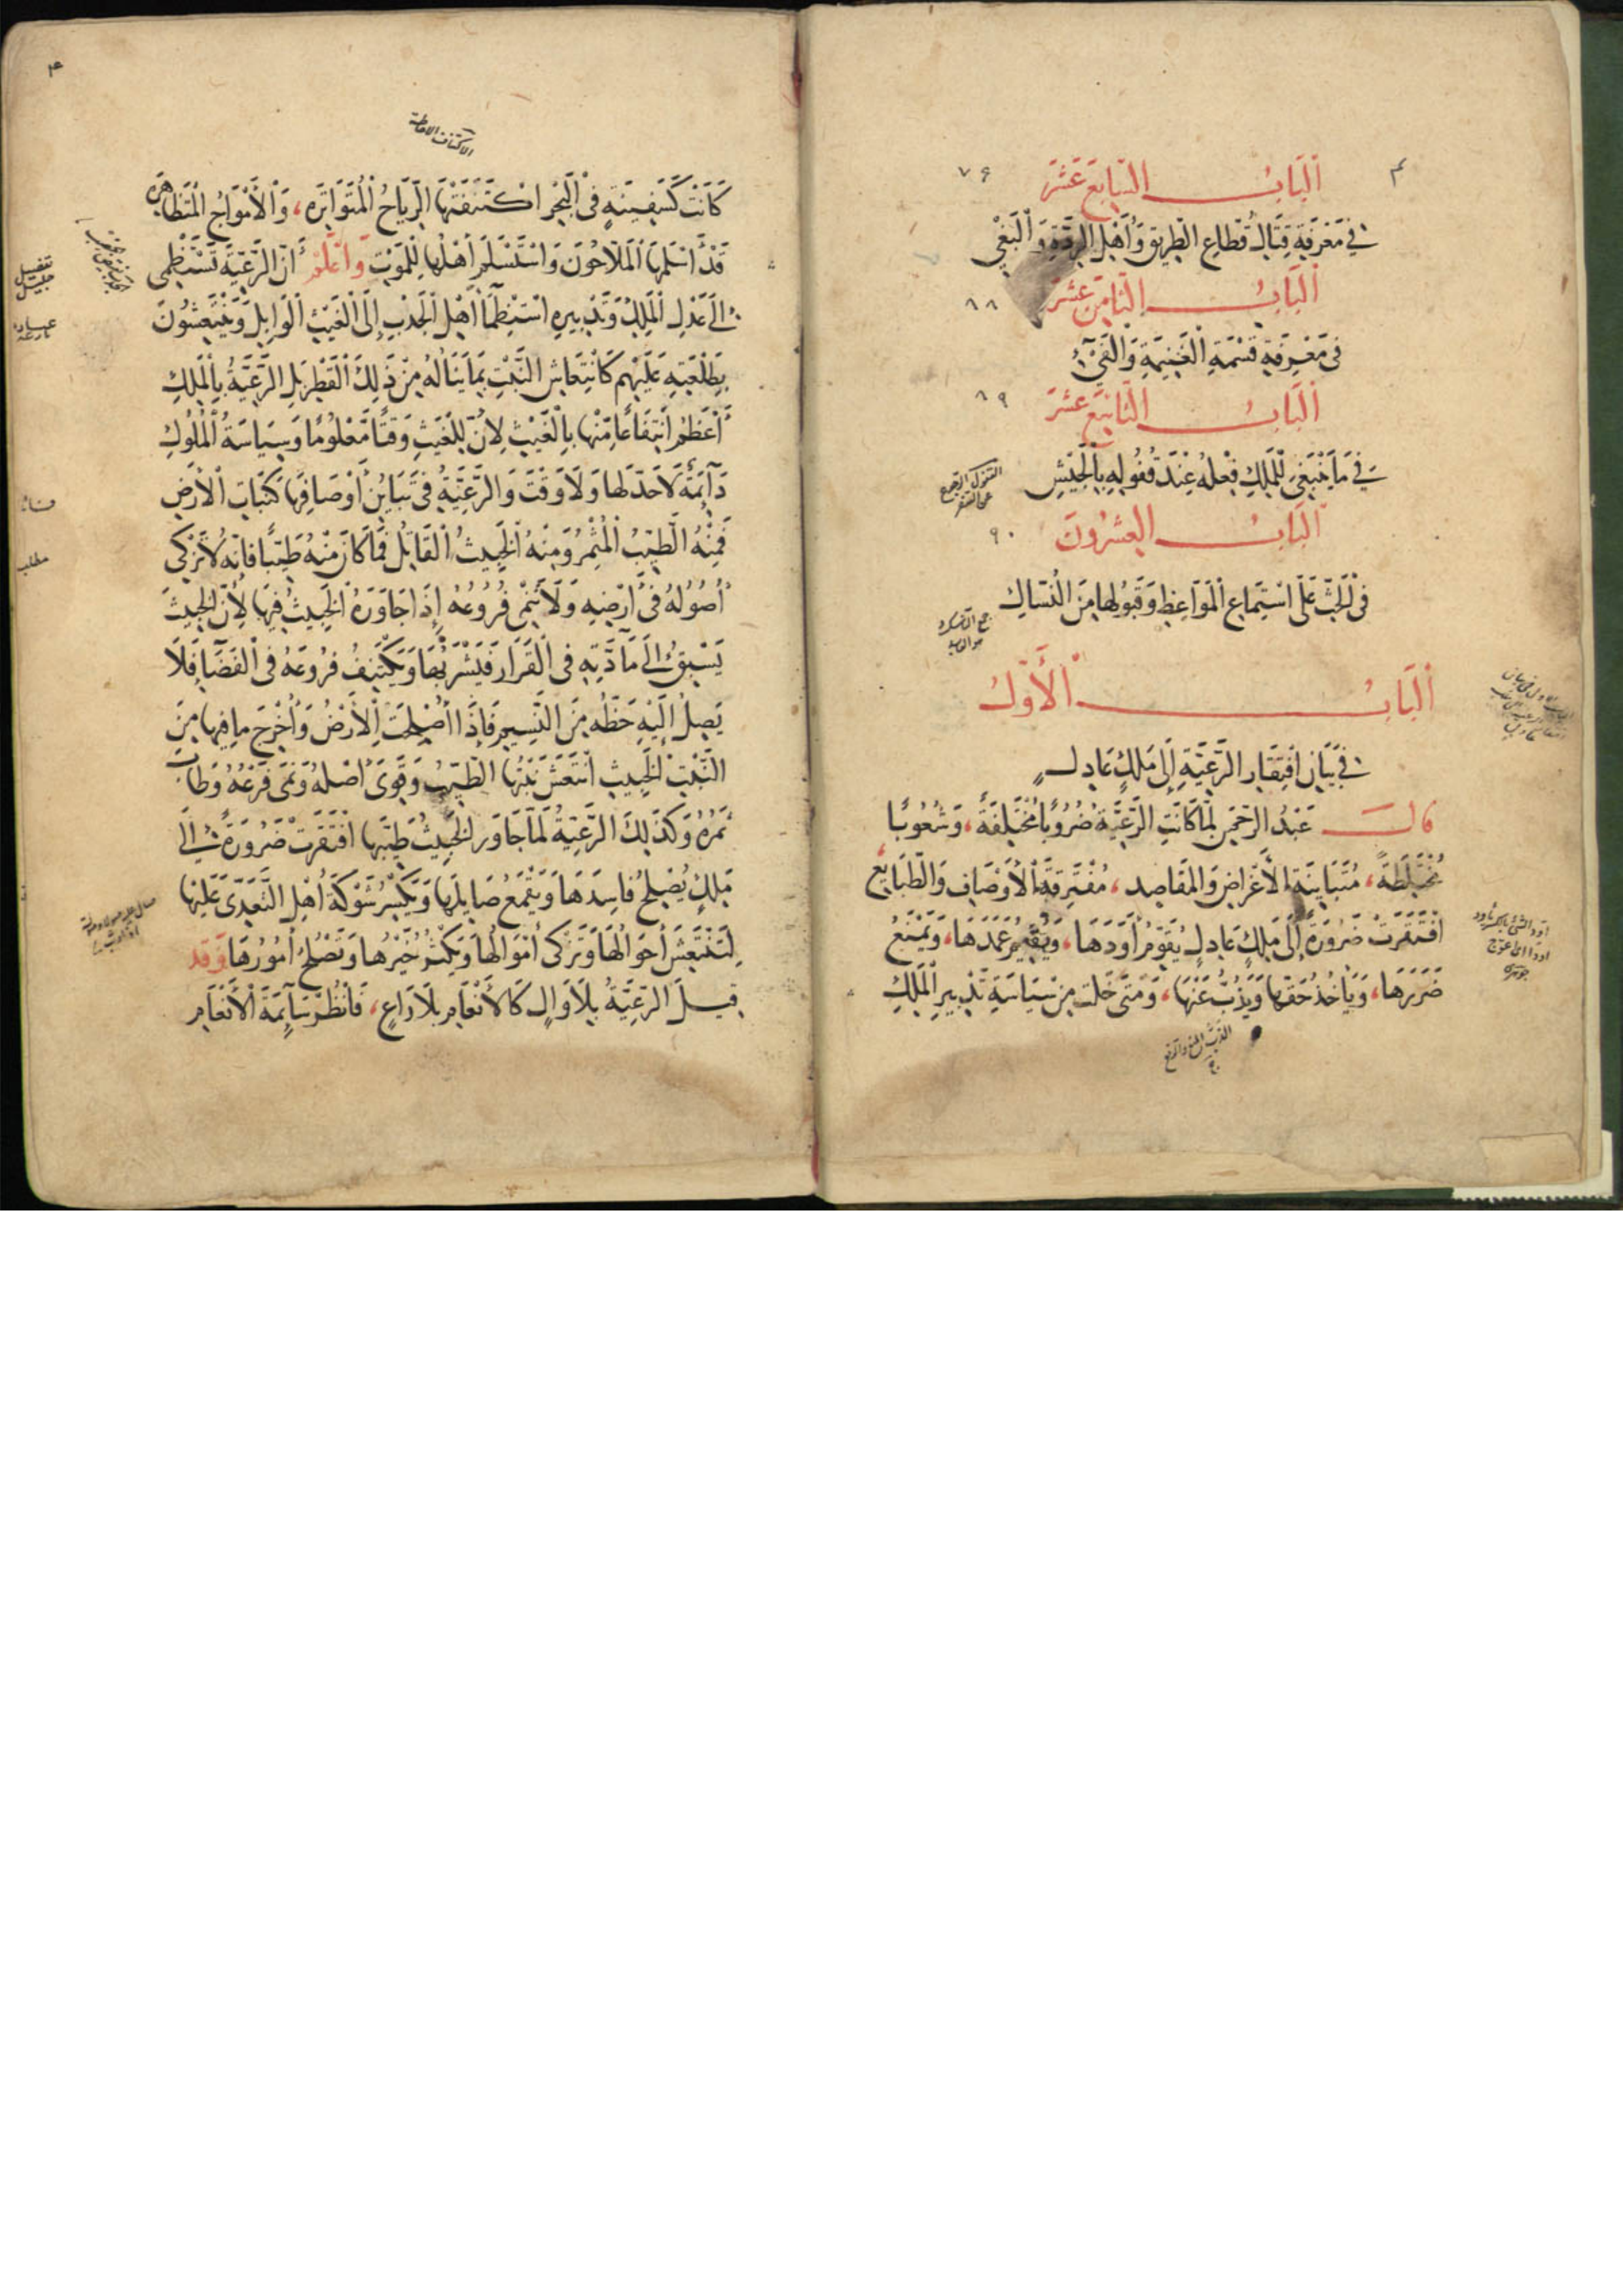 اَلْبَابُ السَّابِعَ عَشَرَ ٧۶
فِي مَعْرِفَةِ قِتَالِ قُطَّاعِ الطَّرِيقِ وَأَهْلِ الرِّدَّةِ وَالْبَغْيِ
اَلْبَابُ الثَّامِنَ عَشَرَ ٨٨
فِي مَعْرِفَةِ قِسْمَةِ الْغَنِيمَةِ وَالْفَيْءِ
اَلْبَابُ التَّاسِعَ عَشَرَ ٨٩
فِي مَا يَنْبَغِي لِلْمَلِكِ فِعْلُهُ عِنْدَ قُفُولِهِ بِالْجَيْشِ
القفول الرجوع
عن السفر
اَلْبَابُ الْعِشْرُونَ ٩٠
فِي الْحَثِّ عَلَى اسْتِمَاعِ الْمَوَاعِظِ وَقَبُولِهَا مِنَ النُّسَّاكِ
اَلْبَابُ الْأَوَّلُ
فِي بَيَانِ افْتِقَارِ الرَّعِيَّةِ إِلَى مَلِكٍ عَادِلٍ
قَالَ عَبْدُ الرَّحْمٰنِ لَمَّا كَانَتِ الرَّعِيَّةُ ضُرُوبًا مُخْتَلِفَةً، وَشُعُوبًا
مُخْتَلِطَةً، مُتَبَايِنَةِ الْأَغْرَاضِ وَالْمَقَاصِدِ، مُفْتَرِقَةِ الْأَوْصَافِ وَالطَّبَايِعِ
افْتَقَرَتْ ضَرُورَةً إِلَى مَلِكٍ عَادِلٍ يُقَوِّمُ أَوَدَهَا، وَيُقِيمُ عَمَدَهَا، وَيَمْنَعُ
ضَرَرَهَا، وَيَأْخُذُ حَقَّهَا وَيَذُبُّ عَنْهَا، وَمَتَى خَلَتْ مِنْ سِيَاسَةِ تَدْبِيرِ الْمَلِكِ
الذب المنع والدفع
۴
كَانَتْ كَسَفِينَةٍ فِي الْبَحْرِ اكْتَنَفَتْهَا الرِّيَاحُ الْمُتَوَاتِرَه، وَالْأَمْوَاجُ الْمُتَظَاهِرَه
قَدْ أَسْلَمَهَا الْمَلَّاحُونَ وَاسْتَسْلَمَ أَهْلُهَا لِلْمَوْتِ وَاعْلَمْ أَنَّ الرَّعِيَّةَ تَسْتَظْمِي
إِلَى عَدْلِ الْمَلِكِ وَتَدْبِيرِهِ اسْتِظْمَاءَ أَهْلِ الْجَدْبِ إِلَى الْغَيْثِ الْوَابِلِ وَيَنْتَعِشُونَ
بِطَلْعَتِهِ عَلَيْهِمْ كَانْتِعَاشِ النَّبْتِ بِمَا يَنَالُهُ مِنْ ذَلِكَ الْقَطْرِ بَلِ الرَّعِيَّةُ بِالْمَلِكِ
أَعْظَمُ انْتِفَاعًا مِنْهَا بِالْغَيْثِ لِأَنَّ لِلْغَيْثِ وَقْتًا مَعْلُومًا وَسِيَاسَةُ الْمُلُوكِ
دَائِمَةٌ لَا حَدَّ لَهَا وَلَا وَقْتَ وَالرَّعِيَّةُ فِي تَبَايُنِ أَوْصَافِهَا كَنَبَاتِ الْأَرْضِ
فَمِنْهُ الطَّيِّبُ الْمُثْمِرُ وَمِنْهُ الْخَبِيثُ الْقَاتِلُ فَمَا كَانَ مِنْهُ طَيِّبًا فَإِنَّهُ لَا تَزْكَى
أُصُولُهُ فِي أَرْضِهِ وَلَا تَنْمِ فُرُوعُهُ إِذَا جَاوَرَهُ الْخَبِيثُ فِيهَا لِأَنَّ الْخَبِيثَ
يَسْبِقُ إِلَى مَادَّتِهِ فِي الْقَرَارِ فَيَشْرَبُهَا وَيَكْتَنِفُ فُرُوعَهُ فِي الْفَضَا فَلَا
يَصِلُ إِلَيْهِ حَظُّهُ مِنَ النَّسِيمِ فَإِذَا أُصْلِحَتِ الْأَرْضُ وَأُخْرِجَ مَا فِيهَا مِنَ
النَّبْتِ الْخَبِيثِ انْتَعَشَ نَبْتُهَا الطَّيِّبُ وَقَوِيَ أَصْلُهُ وَنَمَى فَرْعُهُ وَطَابَ
ثَمَرُهُ وَكَذَلِكَ الرَّعِيَّةُ لَمَّا جَاوَرَ الْخَبِيثُ طَيِّبَهَا افْتَقَرَتْ ضَرُورَةً إِلَى
مَلِكٍ يُصْلِحُ فَاسِدَهَا وَيَقْمَعُ صَايِلَهَا وَيَكْسِرُ شَوْكَةَ أَهْلِ التَّعَدِّي عَلَيْهَا
لِتَنْتَعِشَ أَحْوَالُهَا وَتَزْكَى أَمْوَالُهَا وَيَكْثُرُ خَيْرُهَا وَتَصْلُحُ أُمُورُهَا وَقَدْ
قِيلَ الرَّعِيَّةُ بِلَا وَالٍ كَالْأَنْعَامِ بِلَا رَاعٍ، فَانْظُرْ سَائِمَةَ الْأَنْعَامِ
مطلب